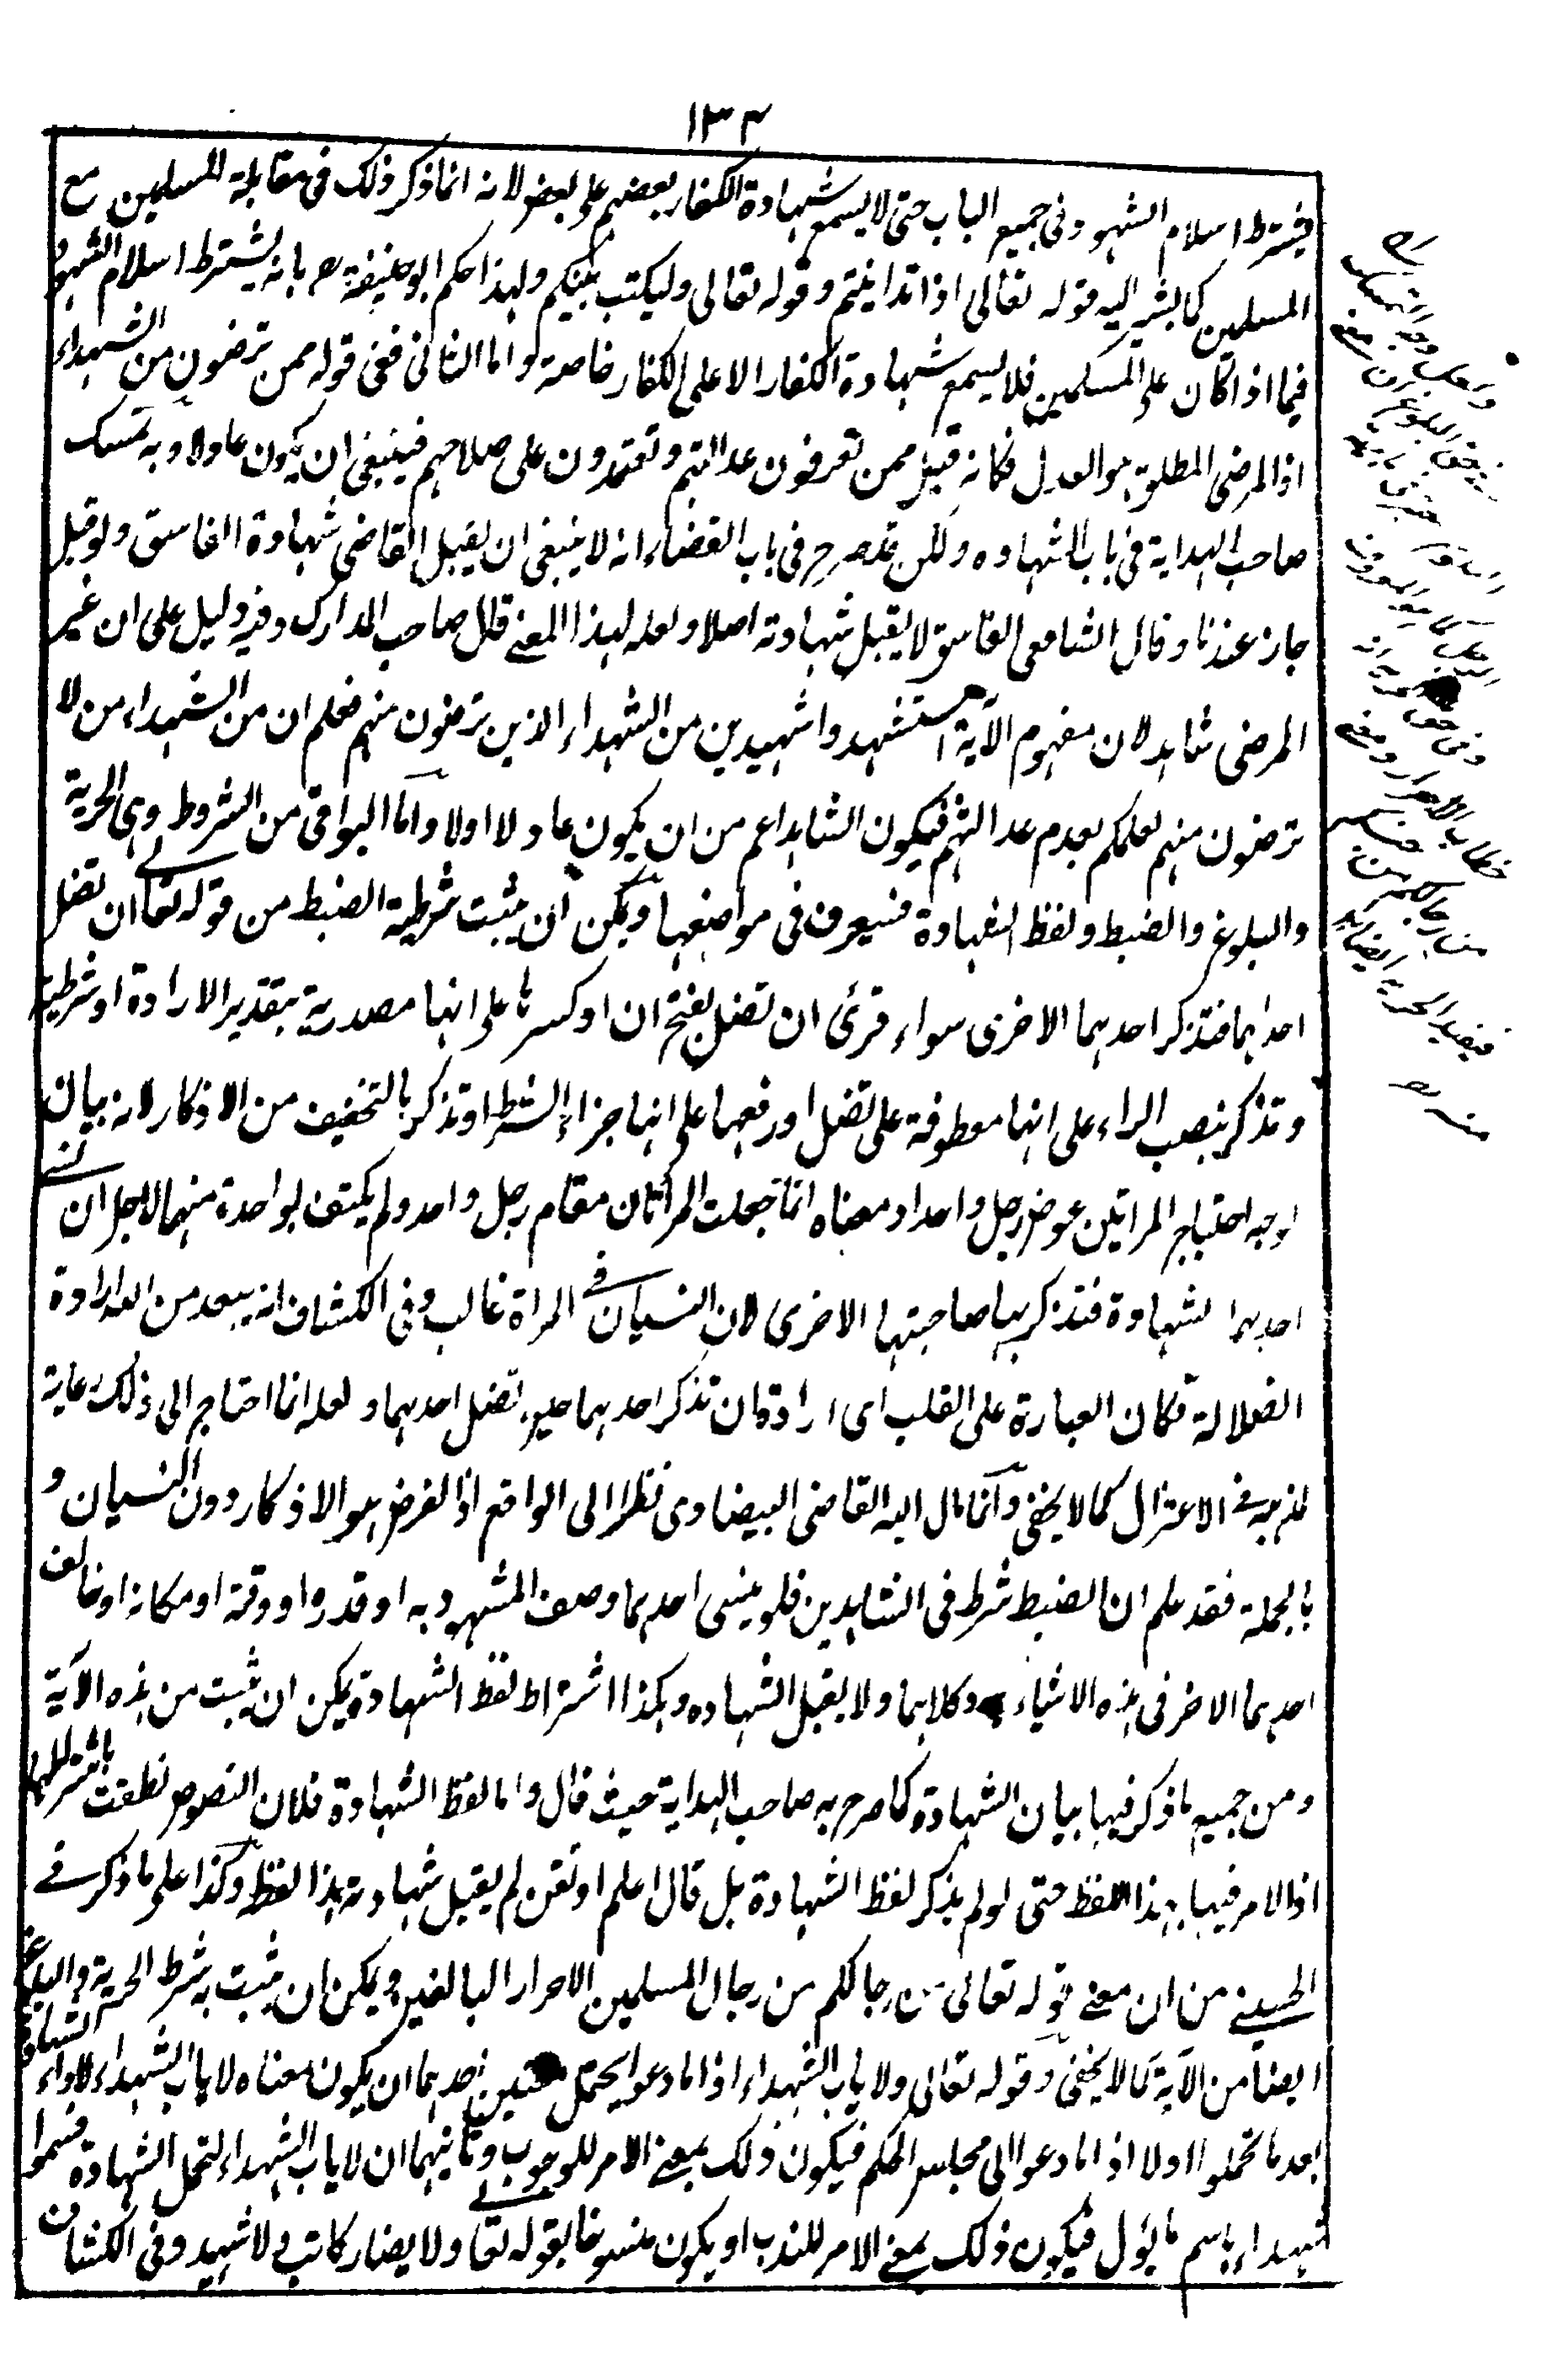 ١٣٤
فيشترط اسلام الشهود فى جميع الباب حتى لا يسمع شهادة الكفار بعضهم على بعض لانه انما ذكر ذلك فى مقابلة المسلمين مع
المسلمين كما يشير اليه قوله تعالى اذا تداينتم وقوله تعالى وليكتب بينكم ولهذا حكم ابو حنيفة رح بانه يشترط اسلام الشهود
فيما اذا كان على المسلمين فلا يسمع شهادة الكفار الا على الكفار خاصة واما الثانى ففى قوله ممن ترضون من الشهداء
اذ المرضى المطلق هو العدل فكانه قيل ممن تعرفون عدالتهم وتعتمدون على صلاحهم فينبغى ان يكون عادلا وبه تمسك
صاحب الهداية فى باب الشهاده ولكن قد صرح فى باب القضاء انه لا ينبغى ان يقبل القاضى شهادة الفاسق ولو قبل
جاز عندنا وقال الشافعى الفاسق لا يقبل شهادته اصلا ولعله لهذا المعنى قال صاحب المدارك وفيه دليل على ان غير
المرضى شاهد لان مفهوم الآية استشهدوا شهيدين من الشهداء الذين ترضون منهم فعلم ان من الشهداء من لا
ترضون منهم لعلمكم بعدم عدالتهم فيكون الشاهد اعم من ان يكون عادلا اولا واما البواقى من الشروط وهى الحرية
والبلوغ والضبط ولفظ الشهادة فسيعرف فى مواضعها ويمكن ان يثبت شرطية الضبط من قوله تعالى ان تضل
احداهما فتذكر احدهما الاخرى سواء قرئ ان تضل بفتح ان او كسرها على انها مصدرية بتقدير الارادة او شرطية
وتذكر بنصب الراء على انها معطوفة على تضل او رفعها على انها جزاء الشرط او تذكر بالتخفيف من الاذكار لانه بيان
لوجه احتياج المراتين عوض رجل واحد ومعناه انما جعلت المراتان مقام رجل واحد ولم يكتف بواحدة منهما لاجل ان تنسى
احدهما لشهادة فتذكر بها صاحبتها الاخرى لان النسيان فى المراة غالب وفى الكشاف انه يبعد من الله ارادة
الضلالة فكان العبارة على القلب اى ارادة ان تذكر احدهما حين تضل احدهما ولعله انما احتاج الى ذلك رعاية
لمذهبه فى الاعتزال كما لا يخفى وانما مال اليه القاضى البيضاوى نظرا الى الواقع اذ الغرض هو الاذكار دون النسيان و
بالجملة فقد علم ان الضبط شرط فى الشاهدين فلو ينسى احدهما وصف المشهود به او قدره او وقته او مكانه او خالف
احدهما الاخر فى هذه الاشياء وكلاهما ولا يقبل الشهاده وهكذا اشتراط لفظ الشهادة يمكن ان يثبت من هذه الآية
ومن جميع ما ذكر فيها بيان الشهادة كما صرح به صاحب الهداية حيث قال واما لفظ الشهادة فلان النصوص نطقت باشتراطها
اذ الامر فيها بهذا اللفظ حتى لو لم يذكر لفظ الشهادة بل قال اعلم او تقن لم يقبل شهادته بهذا لفظه وكذا علم ما ذكر فى
الحسينى من ان معنى قوله تعالى من رجالكم من رجال المسلمين الاحرار البالغين ويمكن ان يثبت به شرط الحرية والبلوغ
ايضا من الآية كما لا يخفى وقوله تعالى ولا ياب الشهداء اذا ما دعوا يحتمل معنيين احدهما ان يكون معناه لا ياب الشهداء لاداء الشهادة
بعد ما تحملوا اولا اذا ما دعوا الى مجلس الحكم فيكون ذلك بمعنى الامر للوجوب وثانيهما ان لا ياب الشهداء لتحمل الشهادة فسموا
شهداء باسم ما يؤل فيكون ذلك بمعنى الامر للندب او يكون منسوخا بقوله تعالى ولا يضار كاتب ولا شهيد وفى الكشاف